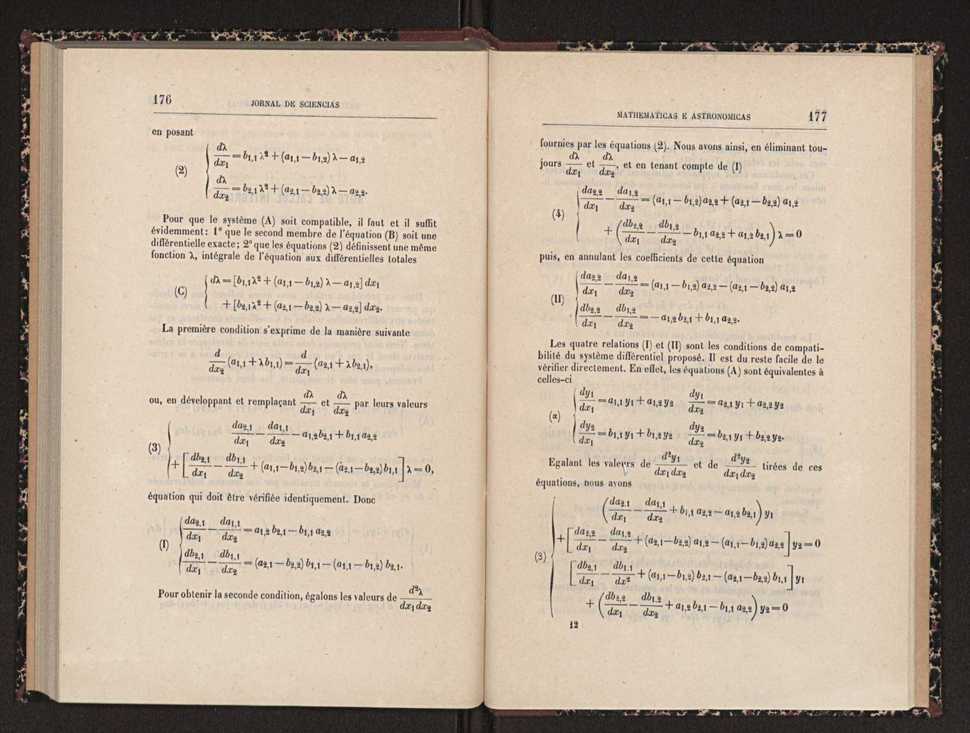 176
JORNAL DE SCIENCIAS
en posant
(2) { dλ/dx₁ = b₁,₁ λ² + (a₁,₁ — b₁,₂) λ — a₁,₂
dλ/dx₂ = b₂,₁ λ² + (a₂,₁ — b₂,₂) λ — a₂,₂.
Pour que le système (A) soit compatible, il faut et il suffit
évidemment: 1° que le second membre de l'équation (B) soit une
différentielle exacte; 2° que les équations (2) définissent une même
fonction λ, intégrale de l'équation aux différentielles totales
(C) { dλ = [b₁,₁ λ² + (a₁,₁ — b₁,₂) λ — a₁,₂] dx₁
+ [b₂,₁ λ² + (a₂,₁ — b₂,₂) λ — a₂,₂] dx₂.
La première condition s'exprime de la manière suivante
d/dx₂ (a₁,₁ + λ b₁,₁) = d/dx₁ (a₂,₁ + λ b₂,₁),
ou, en développant et remplaçant dλ/dx₁ et dλ/dx₂ par leurs valeurs
(3) { da₂,₁/dx₁ — da₁,₁/dx₂ — a₁,₂ b₂,₁ + b₁,₁ a₂,₂
+ [db₂,₁/dx₁ — db₁,₁/dx₂ + (a₁,₁ — b₁,₂) b₂,₁ — (a₂,₁ — b₂,₂) b₁,₁] λ = 0,
équation qui doit être vérifiée identiquement. Donc
(I) { da₂,₁/dx₁ — da₁,₁/dx₂ = a₁,₂ b₂,₁ — b₁,₁ a₂,₂
db₂,₁/dx₁ — db₁,₁/dx₂ = (a₂,₁ — b₂,₂) b₁,₁ — (a₁,₁ — b₁,₂) b₂,₁.
Pour obtenir la seconde condition, égalons les valeurs de d²λ/dx₁dx₂
MATHEMATICAS E ASTRONOMICAS
177
fournies par les équations (2). Nous avons ainsi, en éliminant tou-
jours dλ/dx₁ et dλ/dx₂, et en tenant compte de (I)
(4) { da₂,₂/dx₁ — da₁,₂/dx₂ = (a₁,₁ — b₁,₂) a₂,₂ + (a₂,₁ — b₂,₂) a₁,₂
+ (db₂,₂/dx₁ — db₁,₂/dx₂ — b₁,₁ a₂,₂ + a₁,₂ b₂,₁) λ = 0
puis, en annulant les coefficients de cette équation
(II) { da₂,₂/dx₁ — da₁,₂/dx₂ = (a₁,₁ — b₁,₂) a₂,₂ — (a₂,₁ — b₂,₂) a₁,₂
db₂,₂/dx₁ — db₁,₂/dx₂ = — a₁,₂ b₂,₁ + b₁,₁ a₂,₂.
Les quatre relations (I) et (II) sont les conditions de compati-
bilité du système différentiel proposé. Il est du reste facile de le
vérifier directement. En effet, les équations (A) sont équivalentes à
celles-ci
(α) { dy₁/dx₁ = a₁,₁ y₁ + a₁,₂ y₂ dy₁/dx₂ = a₂,₁ y₁ + a₂,₂ y₂
dy₂/dx₁ = b₁,₁ y₁ + b₁,₂ y₂ dy₂/dx₂ = b₂,₁ y₁ + b₂,₂ y₂.
Egalant les valeurs de d²y₁/dx₁dx₂ et de d²y₂/dx₁dx₂ tirées de ces
équations, nous avons
(3) { (da₂,₁/dx₁ — da₁,₁/dx₂ + b₁,₁ a₂,₂ — a₁,₂ b₂,₁) y₁
+ [da₂,₂/dx₁ — da₁,₂/dx₂ + (a₂,₁ — b₂,₂) a₁,₂ — (a₁,₁ — b₁,₂) a₂,₂] y₂ = 0
[db₂,₁/dx₁ — db₁,₁/dx² + (a₁,₁ — b₁,₂) b₂,₁ — (a₂,₁ — b₂,₂) b₁,₁] y₁
+ (db₂,₂/dx₁ — db₁,₂/dx₂ + a₁,₂ b₂,₁ — b₁,₁ a₂,₂) y₂ = 0
12